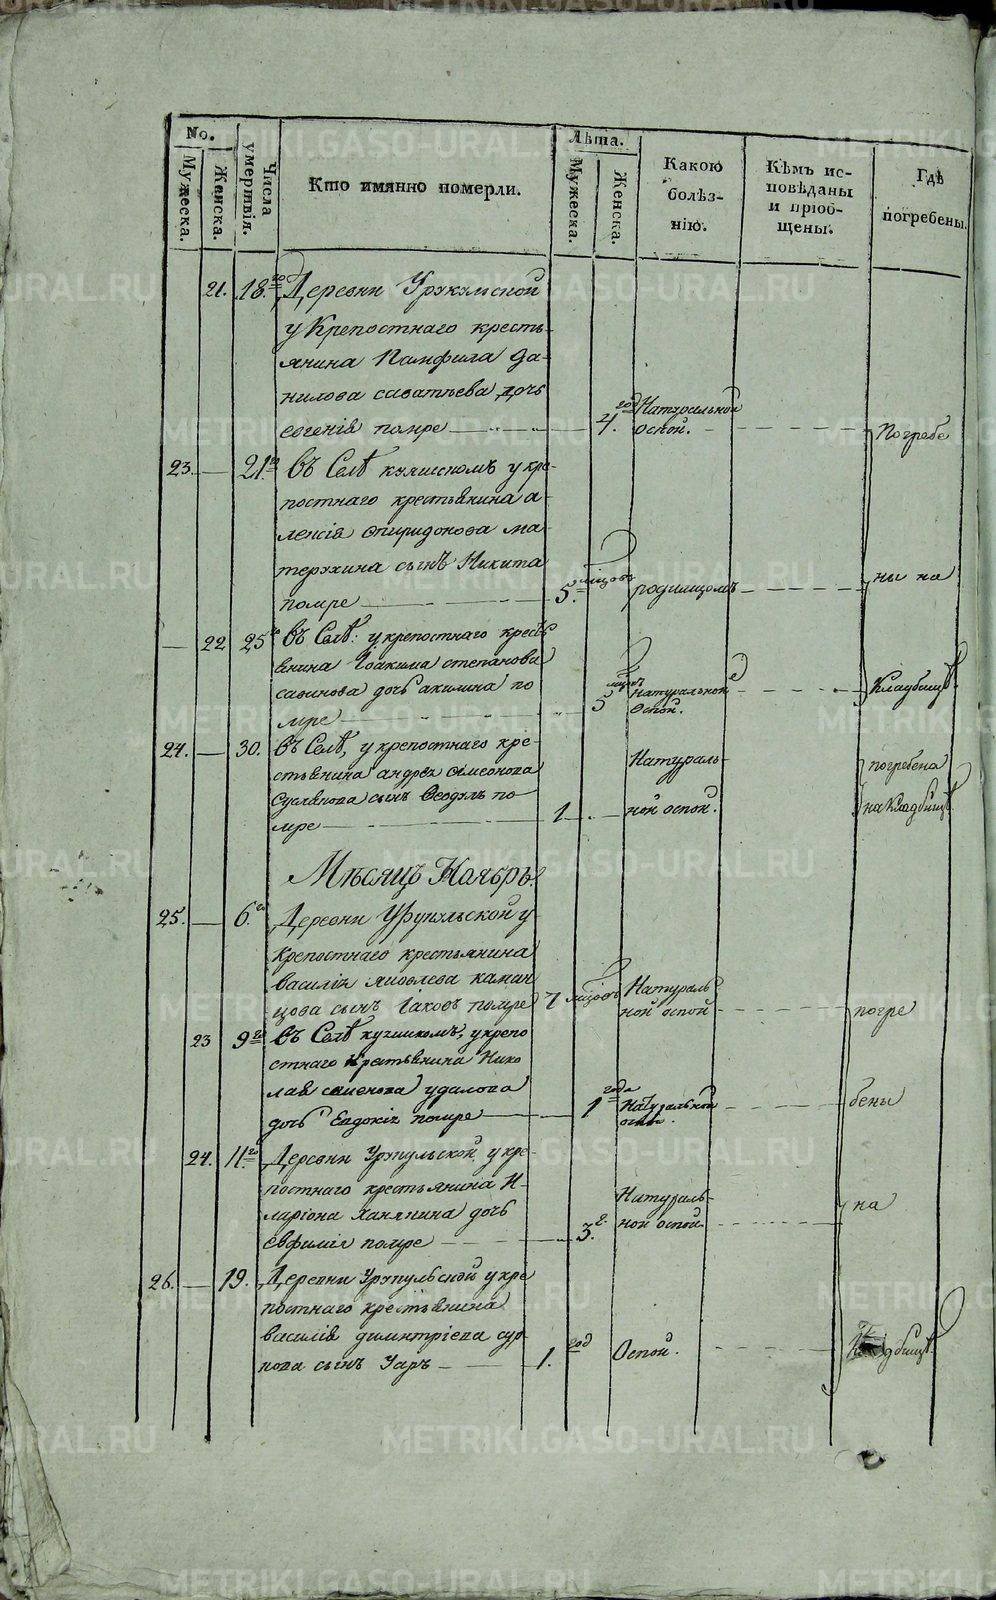 No.
Мужеска.
Женска.
Числа умершихъ.
Кто имянно померли.
Лѣта.
Мужеска.
Женска.
Какою
болѣз-
нію.
Кѣмъ ис-
повѣданы
и пріоб-
щены.
Гдѣ
погребены.
21. 18.го Деревни
у Крепостнаго кресть-
янина Памфила Да-
нилова саватѣева дочь
евгенія помре 4. год Натуральной оспой. Погребе
23. 21.го Въ Селѣ у кре-
постнаго крестьянина а-
лексія спиридонова ма-
терухина сынъ Никита
помре 5. мѣсцовъ родимцомъ ны на
22 25го Въ Селѣ: у крепостнаго кресть
янина Іоакима степанова
савинова дочь акилина по
мре 5 мѣсцъ Натуральной Оспой. Кладбищѣ.
24. 30. Въ Селѣ, у крепостнаго кре-
стьянина андрея симеонова
сынъ Ѳеодулъ по
мре 1. Натураль-
ной оспой. погребена
на Кладбищѣ
Мѣсяцъ Ноябрь.
25. 6.го Деревни у
крепостнаго крестьянина
василія яковлева
сынъ Іаковъ помре 7 мѣсцовъ Натураль
ной оспой погре
23 9го Въ Селѣ у крепо
стнаго крестьянина Нико
лая семенова удалова
дочь Евдокія помре 1 года Натуральной
оспой. бены
24. 11.го Деревни Урукульской у кре-
постнаго крестьянина И-
ларіона дочь
евфимія помре 3. г. Натураль-
ной оспой на
26. 19. Деревни Урукульской у кре
постнаго крестьянина
василія димитріева
сынъ Уаръ 1. год Оспой. Кладбищѣ.
METRIKI.GASO-URAL.RU